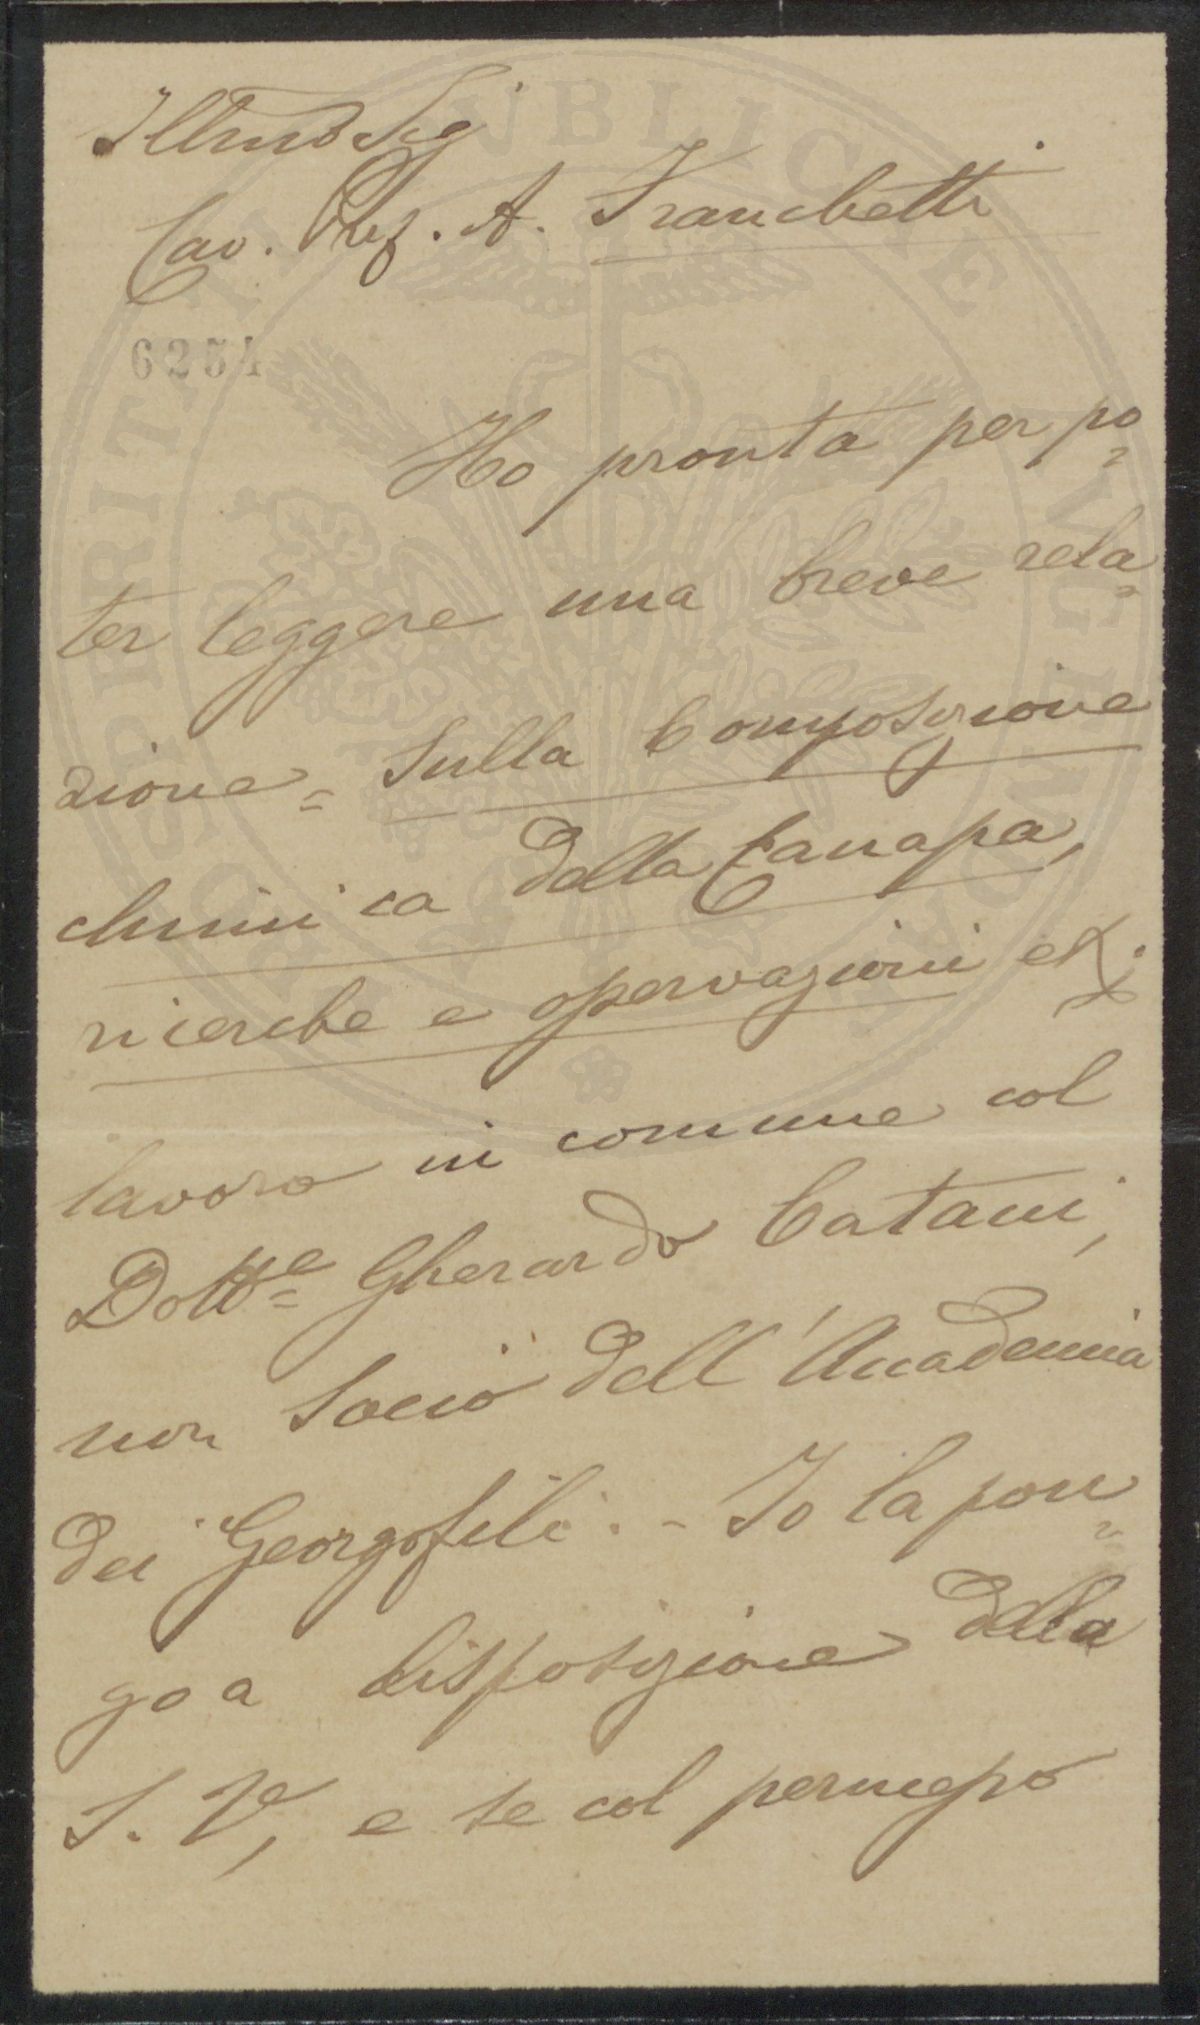 Illmo Sig
Cav. Prof. A. Franchetti
6254
Ho pronta per po=
ter leggere una breve rela=
zione = Sulla Composizione
chimica della Canapa,
ricerche e osservazioni
lavoro in comune col
Dottre Gherardo Catani,
non Socio dell'Accademia
dei Georgofili. - Io la pon=
go a disposizione della
S. V., e se col permesso